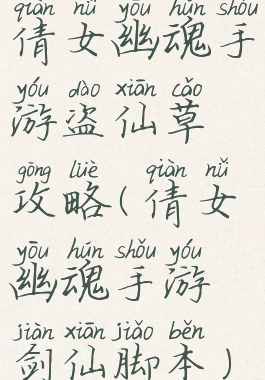 qiàn nǚ yōu hún shǒu
倩女幽魂手
yóu dào xiān cǎo
游盗仙草
gōng lüè qiàn nǚ
攻略(倩女
yōu hún shǒu yóu
幽魂手游
jiàn xiān jiǎo běn
剑仙脚本)